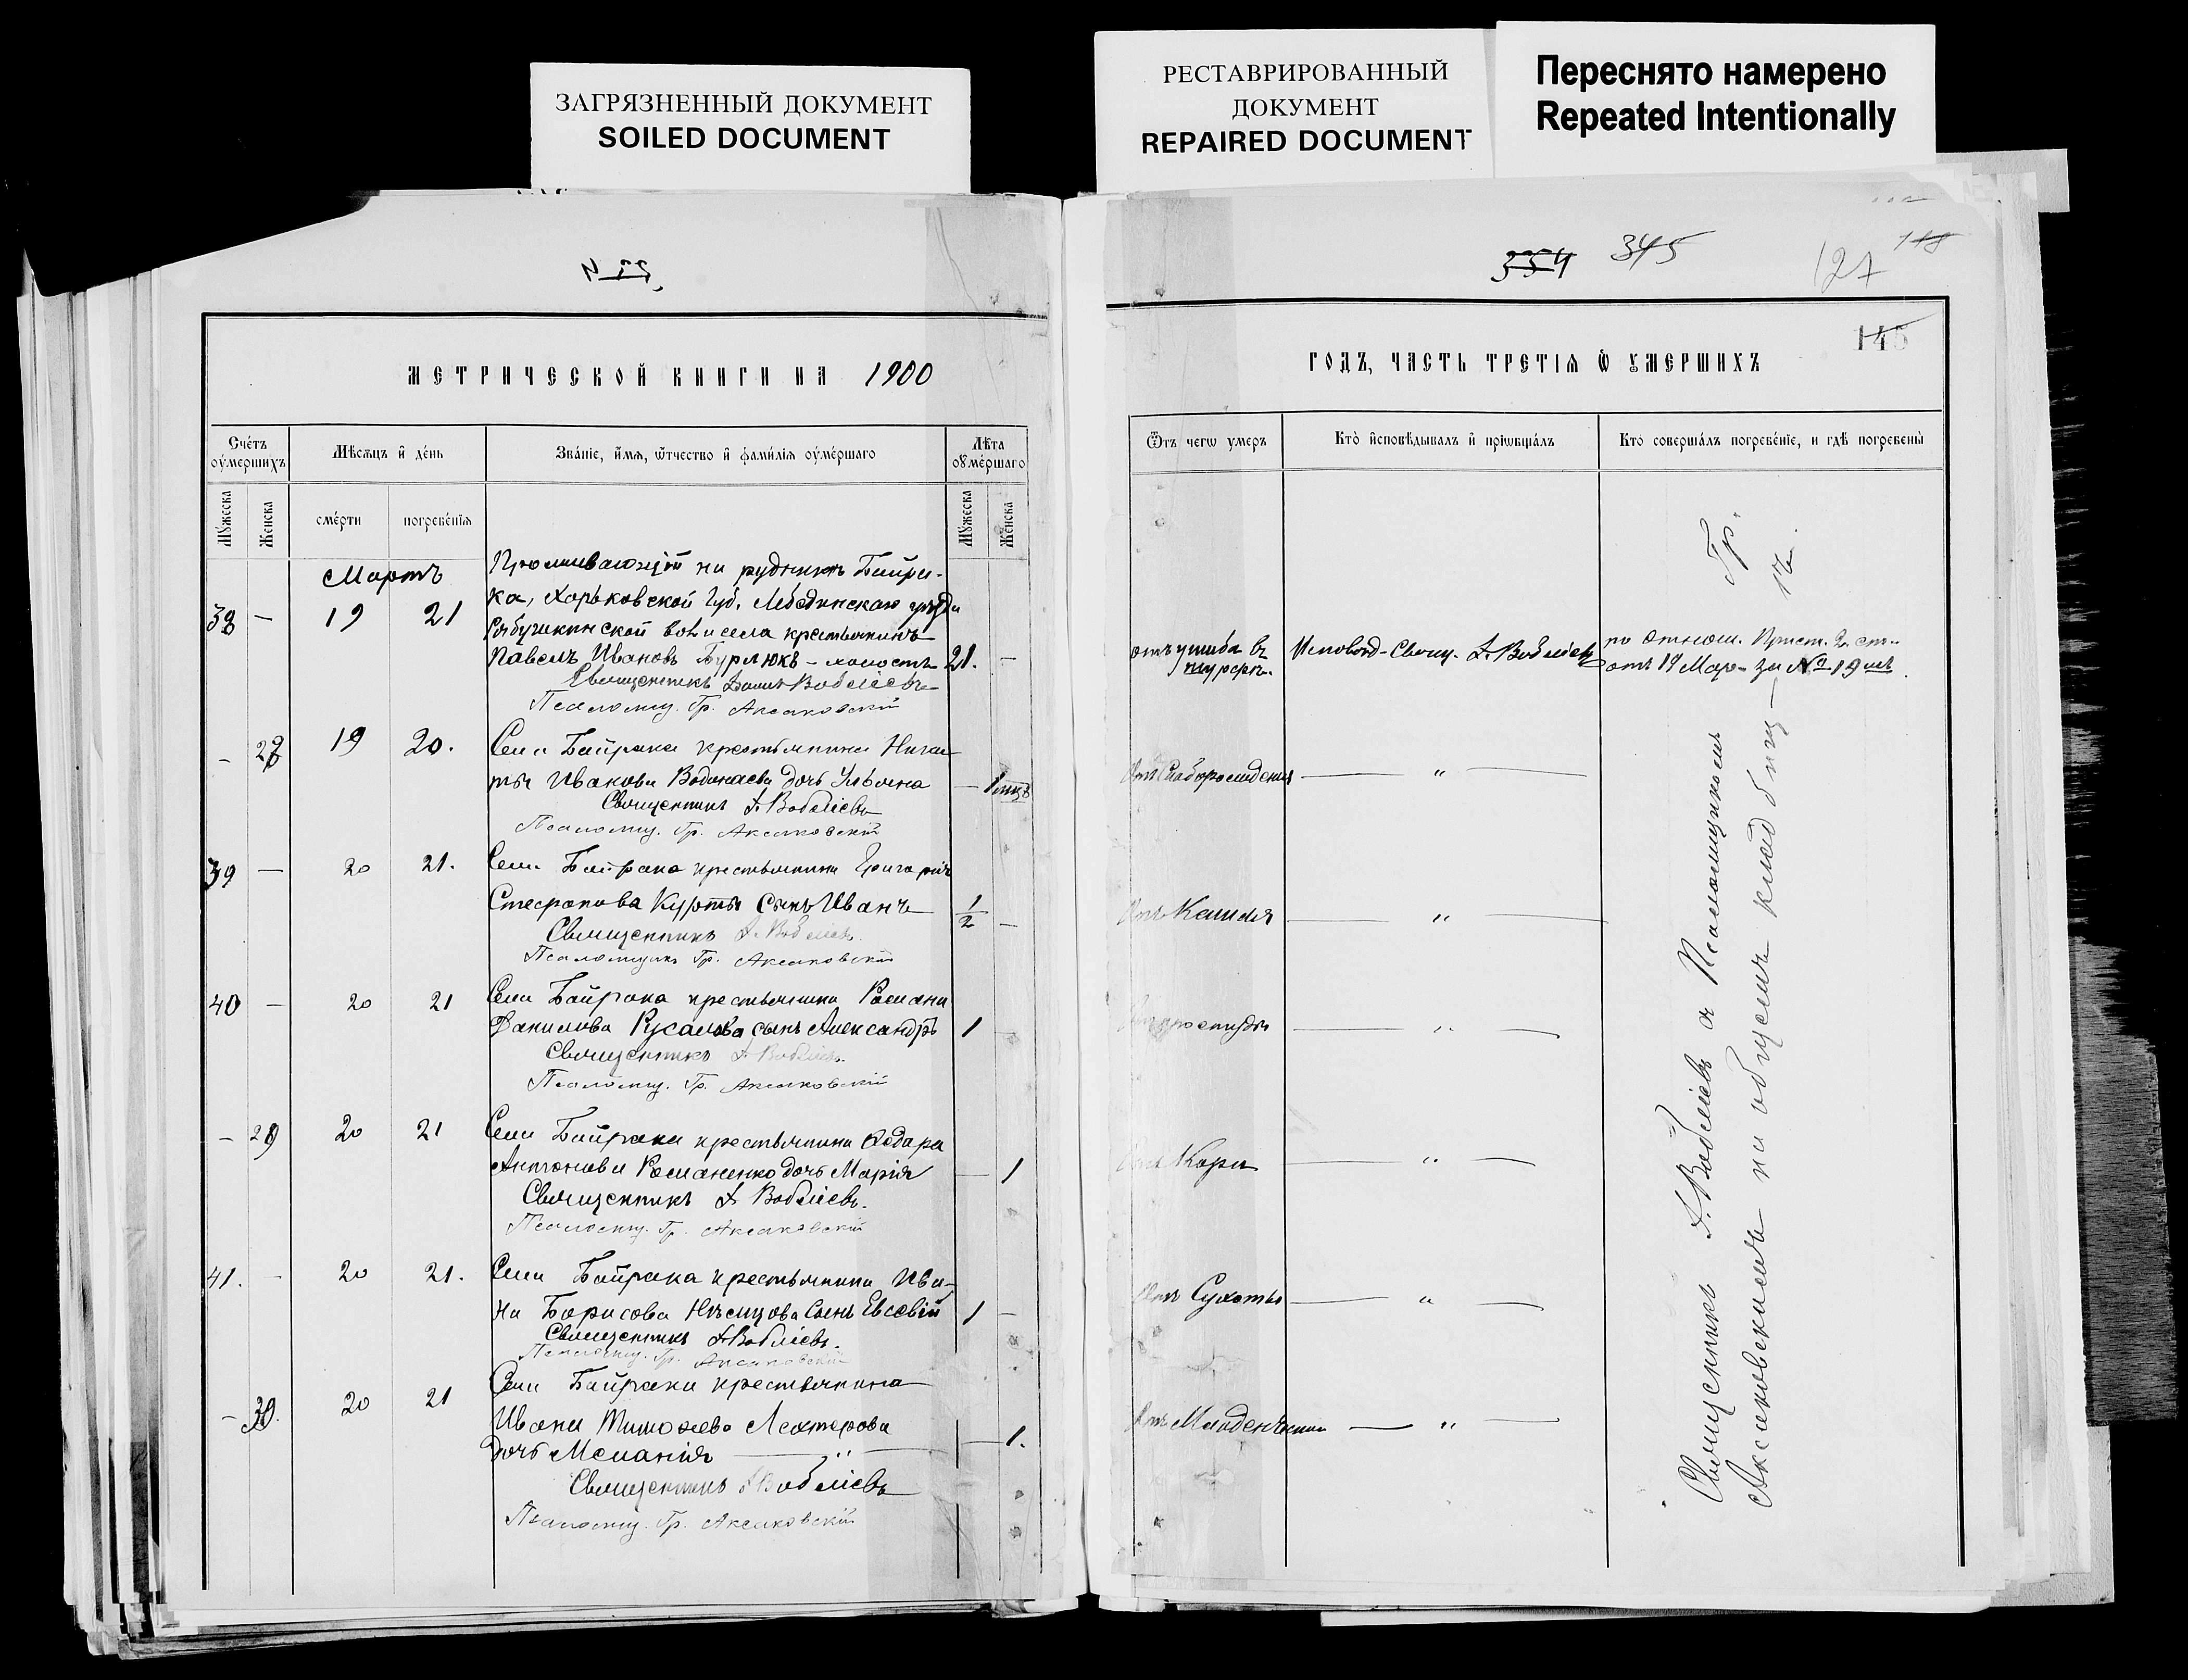 ЗАГРЯЗНЕННЫЙ ДОКУМЕНТ
SOILED DOCUMENT
РЕСТАВРИРОВАННЫЙ
ДОКУМЕНТ
REPAIRED DOCUMENT
Переснято намерено
Repeated Intentionally
354 345 127 118
145
МЕТРИЧЕСКОЙ КНИГИ НА 1900
ГОДЪ, ЧАСТЬ ТРЕТІѦ Ѿ ОУМЕРШИХЪ
Счетъ оумершихъ
Мѣсяцъ и день
Званіе, имя, отчество и фамилія оумершаго
Лѣта оумершаго
Мужеска
Женска
смерти
погребенія
Мужеска
Женска
Отъ чегѡ умеръ
Кто исповѣдывалъ и пріѡбщалъ
Кто совершалъ погребеніе, и гдѣ погребены
Мартъ
38 — 19 21
Проживающій на рудникѣ Байра-
ка, Харьковской Губ. Лебединскаго уѣзда
Рябушкинской вол. и села крестьянинъ
Павелъ Ивановъ Бурлюкъ – холостъ 21. —
Священникъ Воблiевъ
Псаломщ. Гр. Аксаковскій
отъ ушиба въ
шурфѣ.
Исповѣд. Свящ.
по отнош. Прист. 2 ст.
отъ 19 Мар. за № 19
— 28 19 20.
Села Байрака крестьянина Ники-
ты Иванова Водолаева дочь Ульяна — 1 мѣс
Священникъ Воблiевъ
Псаломщ. Гр. Аксаковскій
Отъ Слаборожденія — " —
39 — 20 21.
Села Байрака крестьянина Григорія
Стефанова Курты сынъ Иванъ 1/2 —
Священникъ
Псаломщикъ Гр. Аксаковскій
Отъ Кашля — " —
40 — 20 21
Села Байрака крестьянина Романа
Данилова Русалова сынъ Александръ 1
Священникъ
Псаломщ. Гр. Аксаковскій
простуды — " —
— 29 20 21
Села Байрака крестьянина Ѳедора
Антонова Романенко дочь Марія — 1
Священникъ Воблiевъ.
Псаломщ. Гр. Аксаковскій
Отъ Кори — " —
41. — 20 21.
Села Байрака крестьянина Ива-
на Борисова Нѣмцова сынъ Евсевій 1 —
Священникъ Воблiевъ.
Псаломщ. Гр. Аксаковскій
Отъ Сухоты — " —
— 30. 20 21
Села Байрака крестьянина
Ивана Тимофеева Лехтерова
дочь Меланія — " — 1.
Священникъ Воблiевъ
Псаломщ. Гр. Аксаковскій
Отъ Младенческ — " —
Священникъ Воблiевъ а Псаломщикомъ Гр.
Аксаковскимъ на общемъ кладбищ